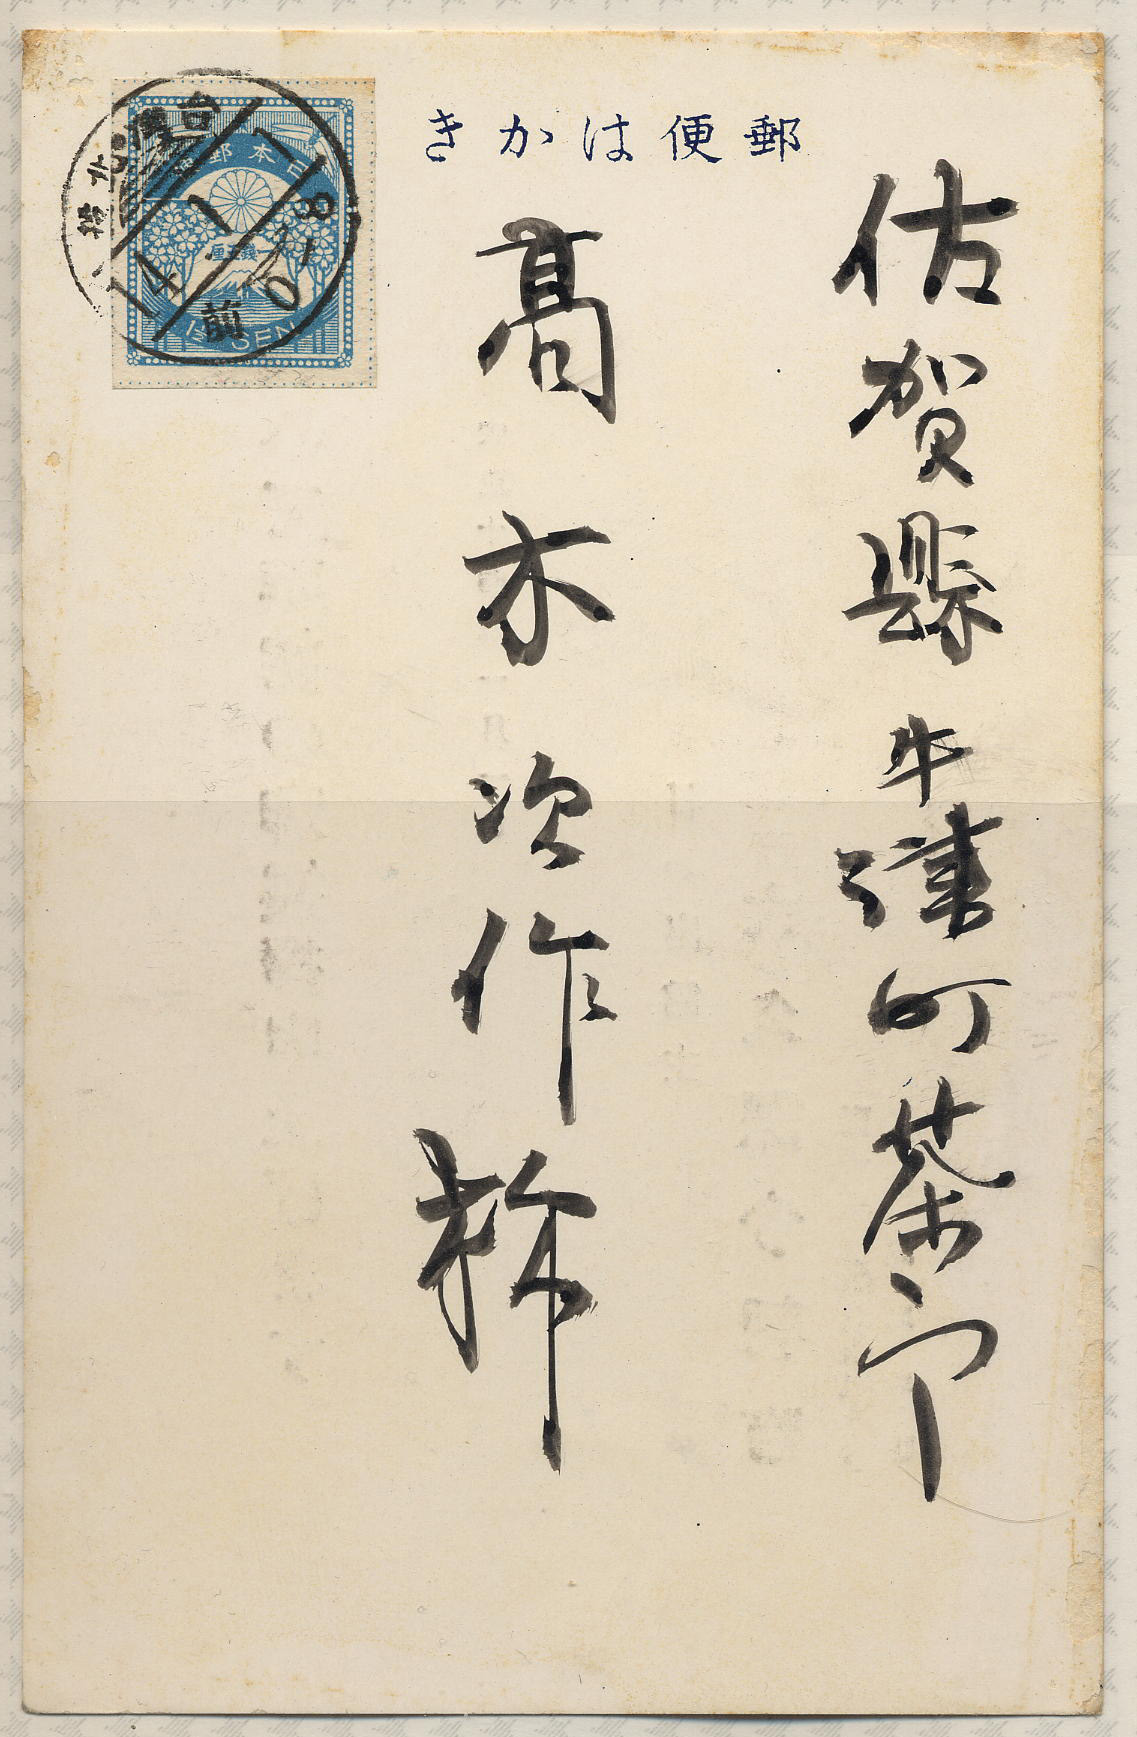 郵便はかき
佐賀縣牛津町茶
髙木次作様
日本郵
一錢五厘
1½ SEN
臺灣
14
1
前